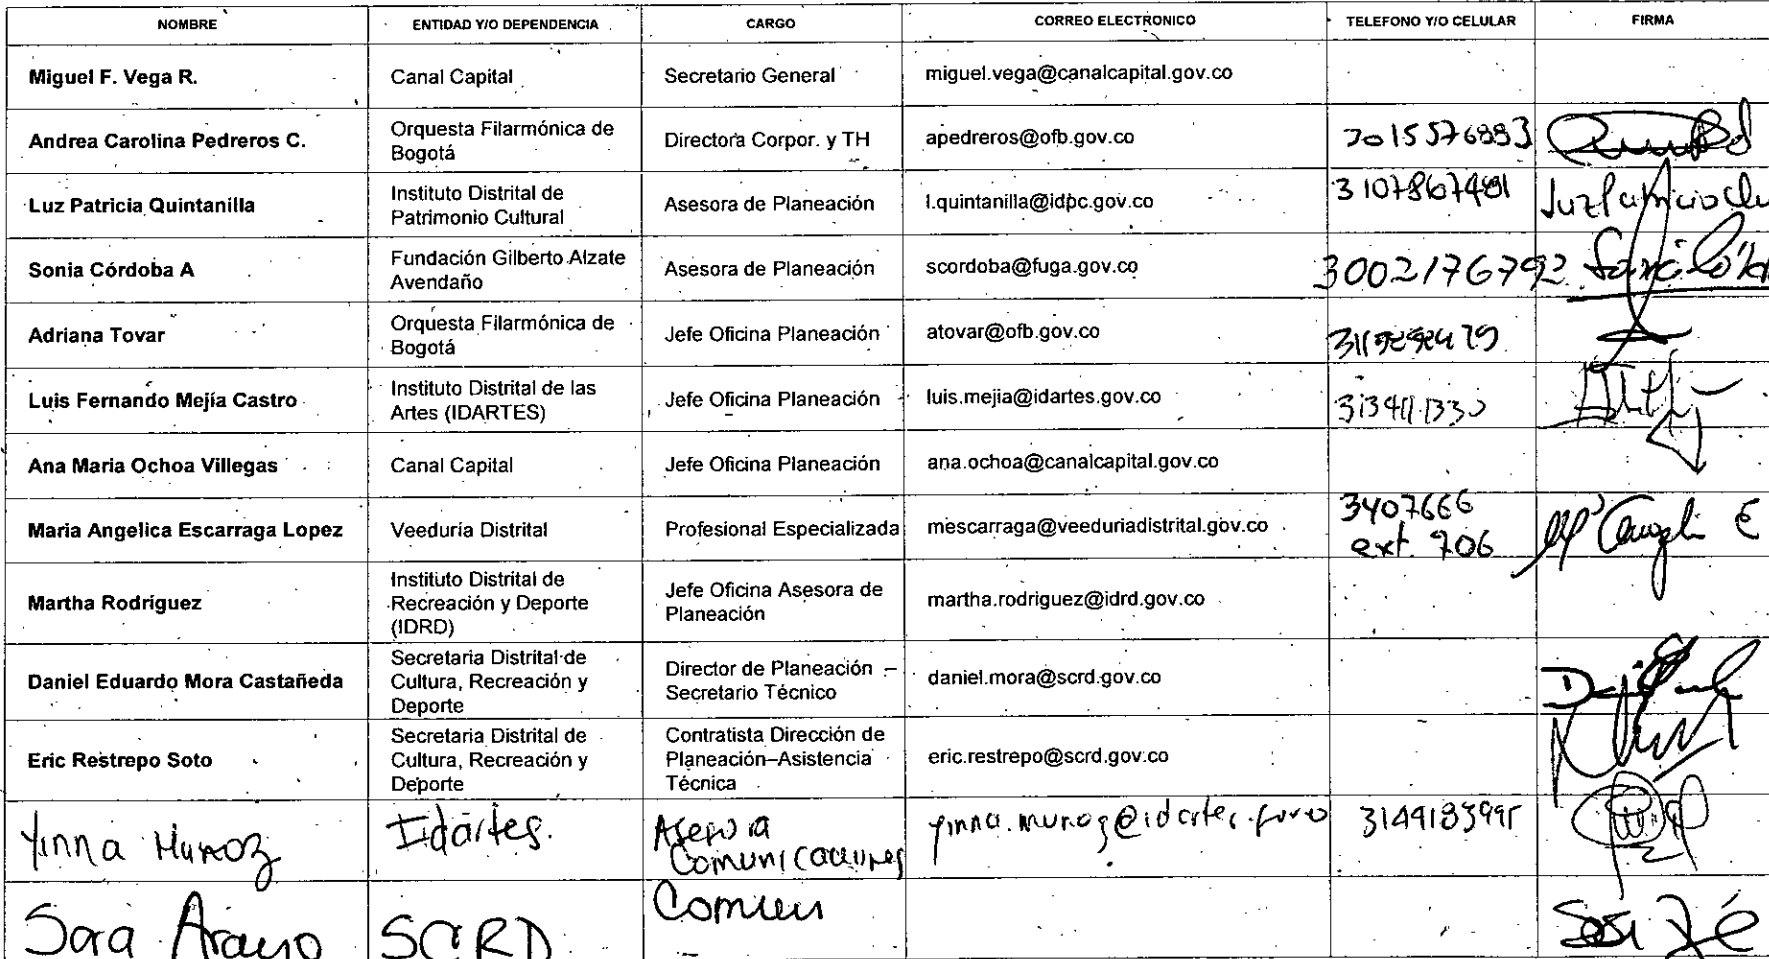 NOMBRE ENTIDAD Y/O DEPENDENCIA CARGO CORREO ELECTRONICO TELEFONO Y/O CELULAR FIRMA
Miguel F. Vega R. Canal Capital Secretario General miguel.vega@canalcapital.gov.co
Andrea Carolina Pedreros C. Orquesta Filarmónica de
Bogotá Directora Corpor. y TH apedreros@ofb.gov.co
Luz Patricia Quintanilla Instituto Distrital de
Patrimonio Cultural Asesora de Planeación l.quintanilla@idpc.gov.co
Sonia Córdoba A Fundación Gilberto Alzate
Avendaño Asesora de Planeación scordoba@fuga.gov.co 3002176792
Adriana Tovar Orquesta Filarmónica de
Bogotá Jefe Oficina Planeación atovar@ofb.gov.co
Luis Fernando Mejía Castro Instituto Distrital de las
Artes (IDARTES) Jefe Oficina Planeación luis.mejia@idartes.gov.co
Ana Maria Ochoa Villegas Canal Capital Jefe Oficina Planeación ana.ochoa@canalcapital.gov.co
Maria Angelica Escarraga Lopez Veeduría Distrital Profesional Especializada mescarraga@veeduriadistrital.gov.co 3407666
ext. 706
Martha Rodríguez Instituto Distrital de
Recreación y Deporte
(IDRD) Jefe Oficina Asesora de
Planeación martha.rodriguez@idrd.gov.co
Daniel Eduardo Mora Castañeda Secretaria Distrital de
Cultura, Recreación y
Deporte Director de Planeación –
Secretario Técnico daniel.mora@scrd.gov.co
Eric Restrepo Soto Secretaria Distrital de
Cultura, Recreación y
Deporte Contratista Dirección de
Planeación–Asistencia
Técnica eric.restrepo@scrd.gov.co
Yinna Muñoz Idartes. Asesora
Comunicaciones
Sara Araujo SCRD